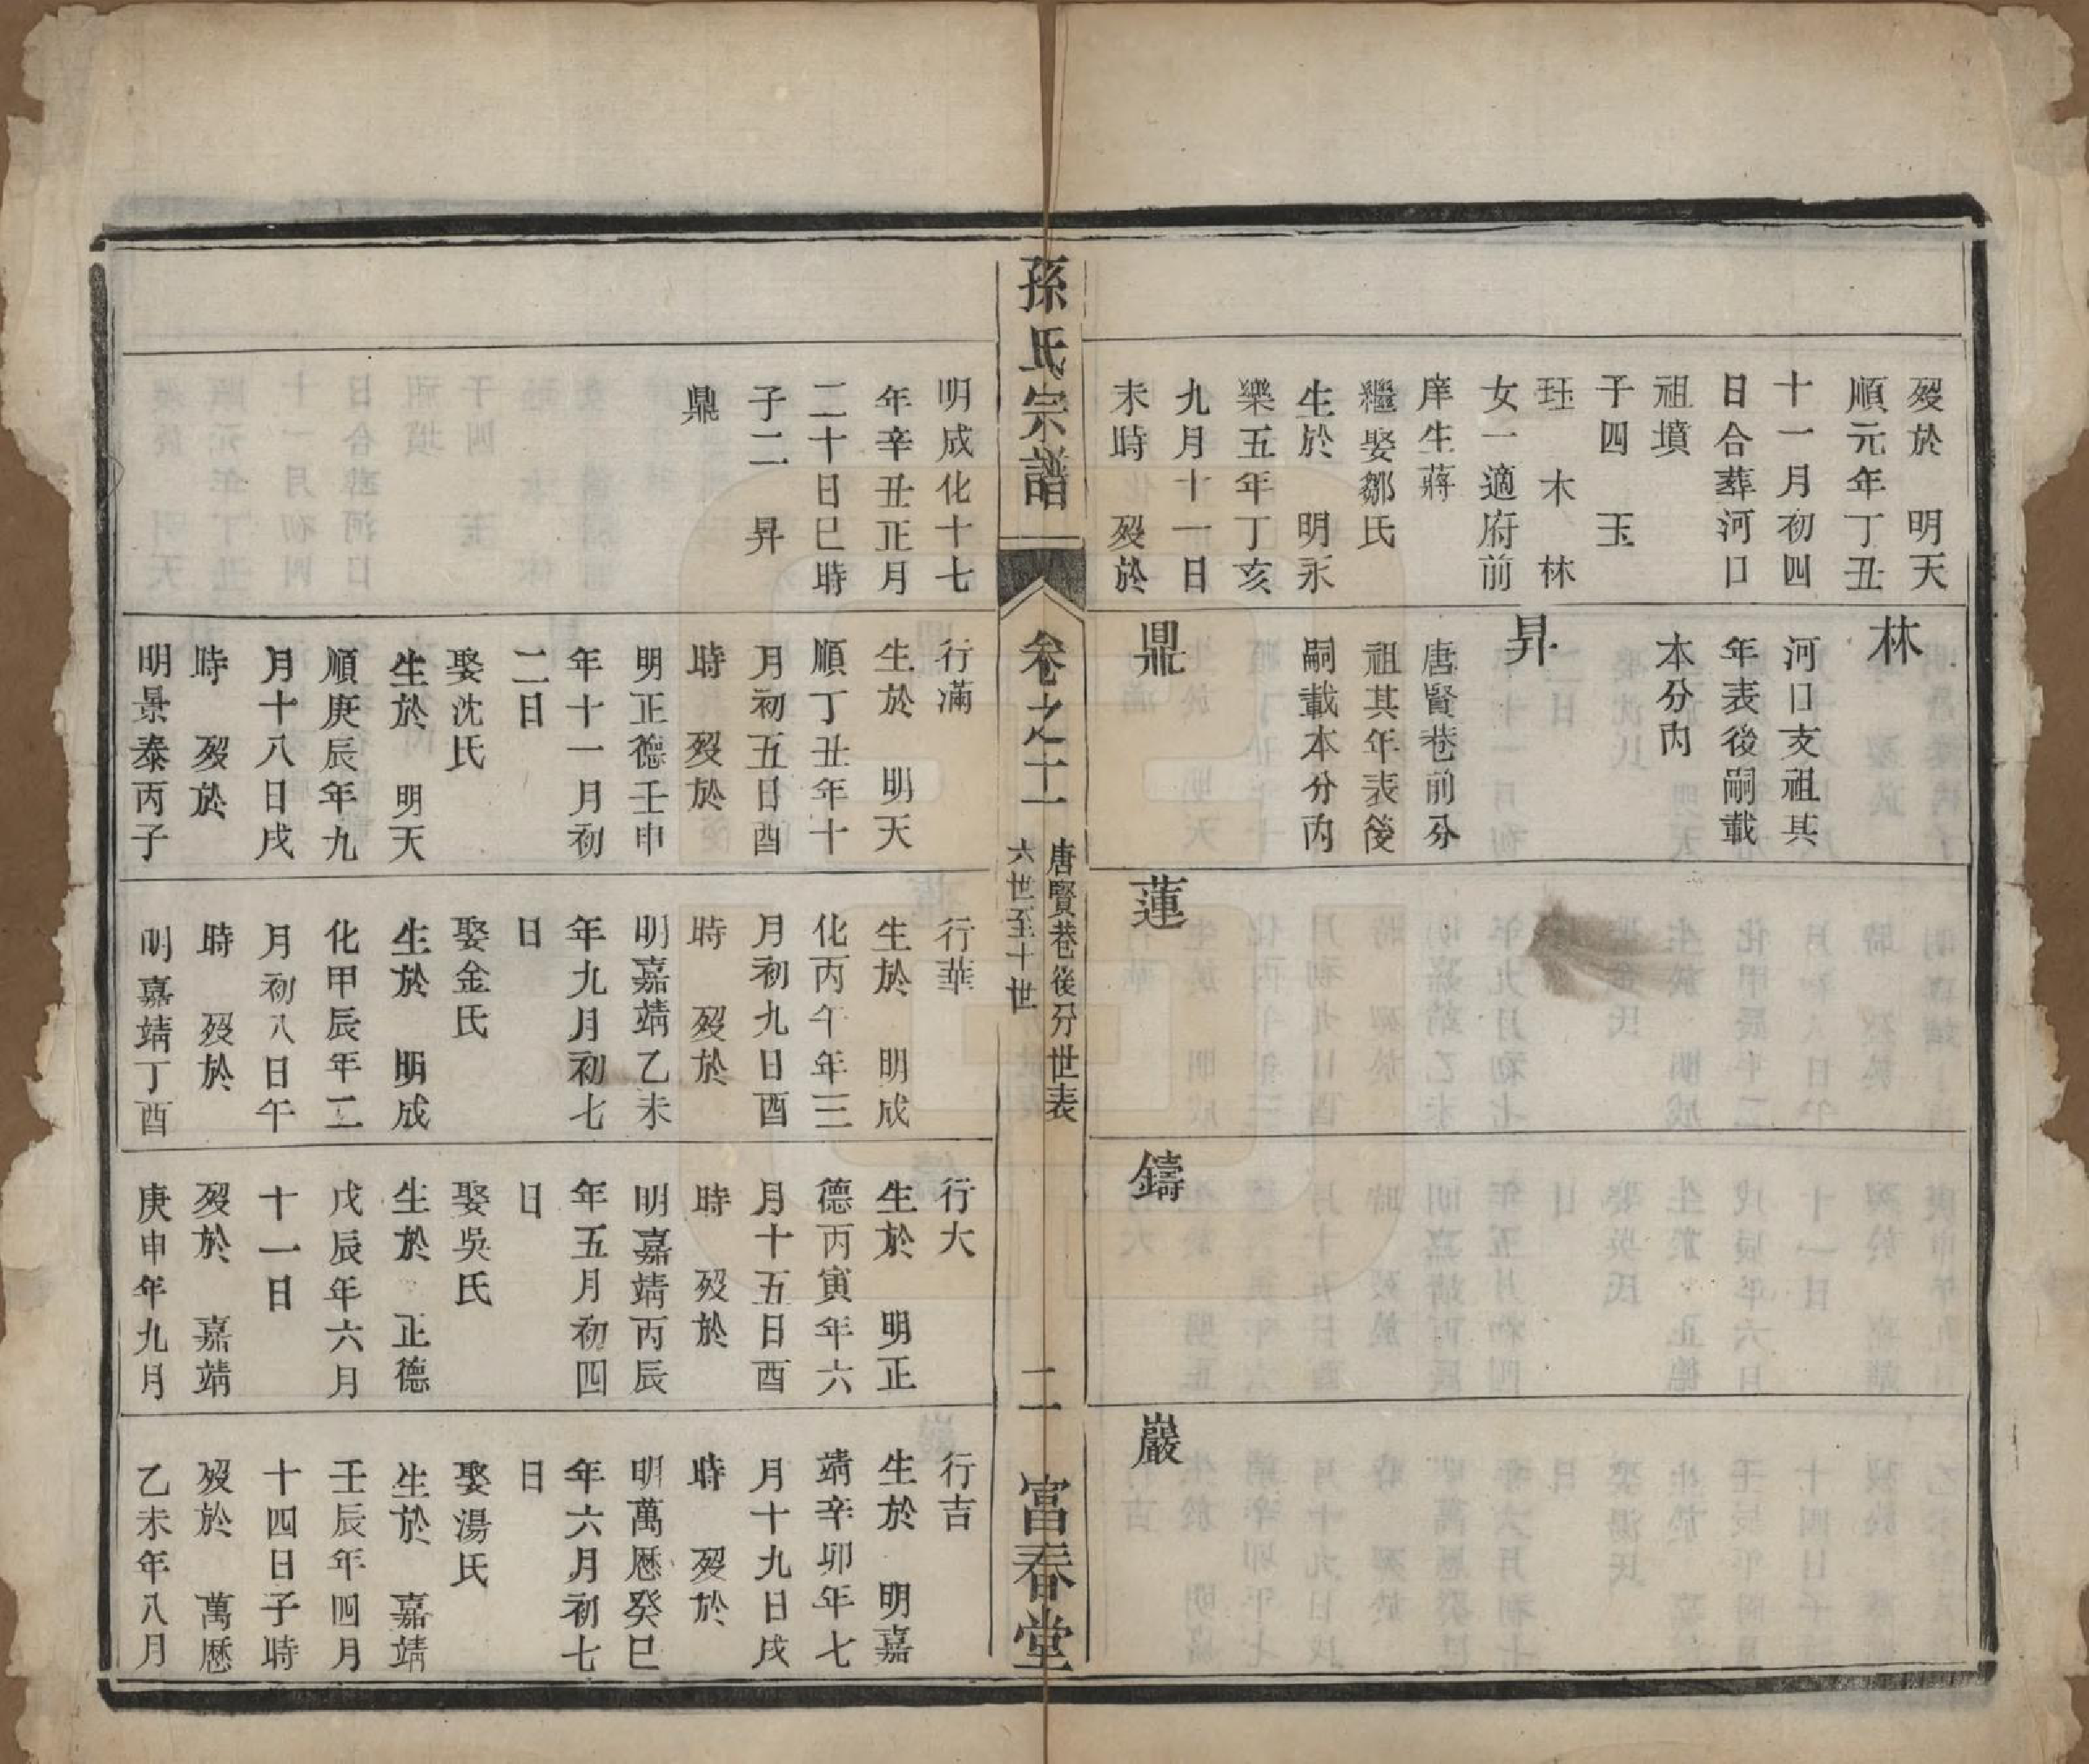 歿於　明天
順元年丁丑
十一月初四
日合葬河口
祖墳
子四　玉
珏　木　林
女一適府前
庠生蔣
繼娶鄒氏
生於　明永
樂五年丁亥
九月十一日
未時　歿於
林
河口支祖其
年表後嗣載
本分內
昇
唐賢巷前分
祖其年表後
嗣載本分內
鼎
蓮
鑄
巖
孫氏宗譜
卷之十一
唐賢巷後分世表
六世至十世
二
富春堂
明成化十七
年辛丑正月
二十日巳時
子二　昇
鼎
行滿
生於　明天
順丁丑年十
月初五日酉
時　歿於
明正德壬申
年十一月初
二日
娶沈氏
生於　明天
順庚辰年九
月十八日戌
時　歿於
明景泰丙子
行華
生於　明成
化丙午年三
月初九日酉
時　歿於
明嘉靖乙未
年九月初七
日
娶金氏
生於　明成
化甲辰年二
月初八日午
時　歿於
明嘉靖丁酉
行大
生於　明正
德丙寅年六
月十五日酉
時　歿於
明嘉靖丙辰
年五月初四
日
娶吳氏
生於　正德
戊辰年六月
十一日
歿於　嘉靖
庚申年九月
行吉
生於　明嘉
靖辛卯年七
月十九日戌
時　歿於
明萬歷癸巳
年六月初七
日
娶湯氏
生於　嘉靖
壬辰年四月
十四日子時
歿於　萬歷
乙未年八月